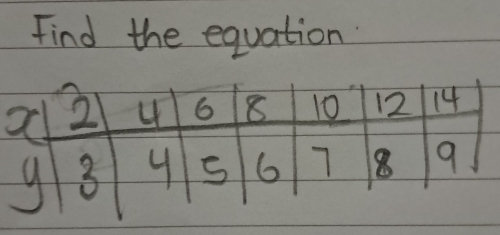 Find the equation.
x | 2 | 4 | 6 | 8 | 10 | 12 | 14
y | 3 | 4 | 5 | 6 | 7 | 8 | 9